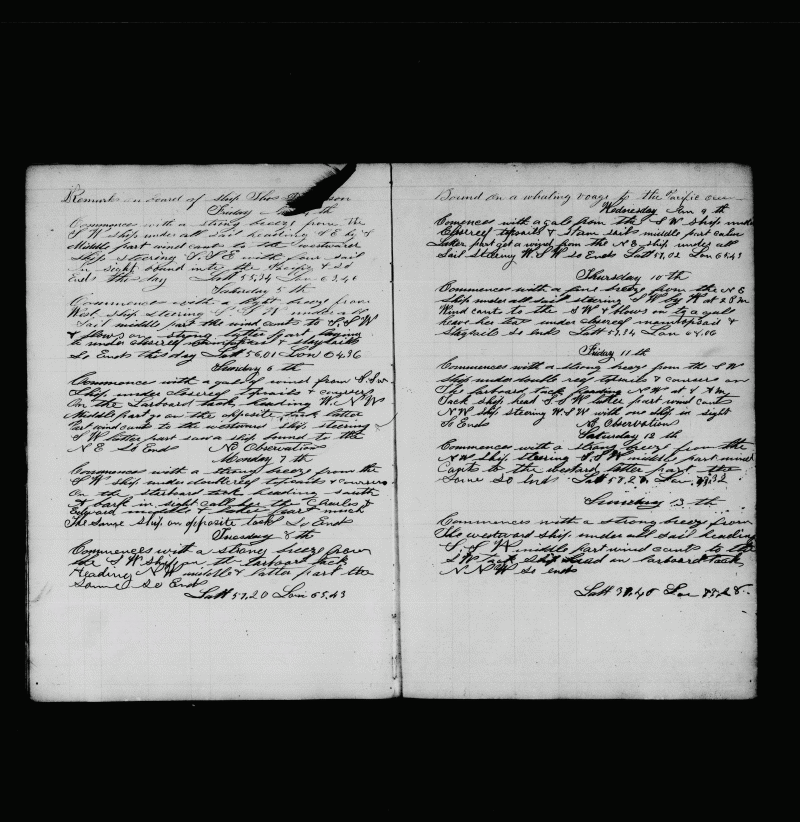 Remarks on board of Ship Thos
Friday th
Commences with a strong breeze from the
S W ship under all sail heading S E by S
Middle part wind cants to the westward
Ship steering S.S.E with four sail
in sight bound into the Pacific & so
Ends the day Latt 55,34 Lon 63,46
Saturday 5 th
Commences with a light breeze from
West ship steering S. S. W under all
Sail middle part the wind cants to S.S.W
& blows latter part laying
to under closereef & staysails
So Ends this day Latt 56.01 Lon 64.36
Sunday 6 th
Commences with a gale of wind from S.S.W
Ship under Closereef topsails & courses
On the Larboard tack heading W. N W
Middle part go on the opposite tack latter
Part wind cants to the westward ship steering
S W latter part saw a ship bound to the
N E So Ends No Observation
Monday 7 th
Commences with a strong breeze from the
S W ship under doublereef topsails & courses
On the Starboard tack heading south
A bark in sight calls her the Charles &
Edward middle & latter part much
The Same Ship on opposite tack So Ends
Tuesday 8 th
Commences with a strong breeze from
the S W ship on the Larboard tack
Heading N W middle & latter part the
Same So Ends
Latt 57,20 Lon 65,43
Bound on a whaling voage to the Pacific
Wednesday Jan 9 th
Comences with a gale from the S W ship under
Closereef topsails & Stam sails middle part calm
Latter part get a wind from the N E ship under all
Sail Steering W. S W So Ends Latt 57,02 Lon 65,43
Thursday 10 th
Commences with a fine breeze from the N E
Ship under all sail steering S W by W at 2 P M
Wind cants to the S W & blows on to a gale
heave her too under closereef mainspsail &
Staysails So Ends Latt 57,34 Lon 68.06
Friday 11 th
Commences with a strong breeze from the S W
Ship under double reef topsails & courses on
The larboard tack heading N W at 4 A M
Tack ship head S.S W latter part wind cants
N W ship steering W.S W with one ship in sight
So Ends No Observation
Saturday 12 th
Commences with a strong breeze from the
N W Ship steering S.S W middle part wind
Cants to the westard latter part the
Same So Ends Latt 57.27 Lon
Sunday 13 th
Commences with a strong breeze from
The westward ship under all sail heading
S. S W middle part wind cants to the
S W ship on larboard tack
N N W So ends
Latt Lon